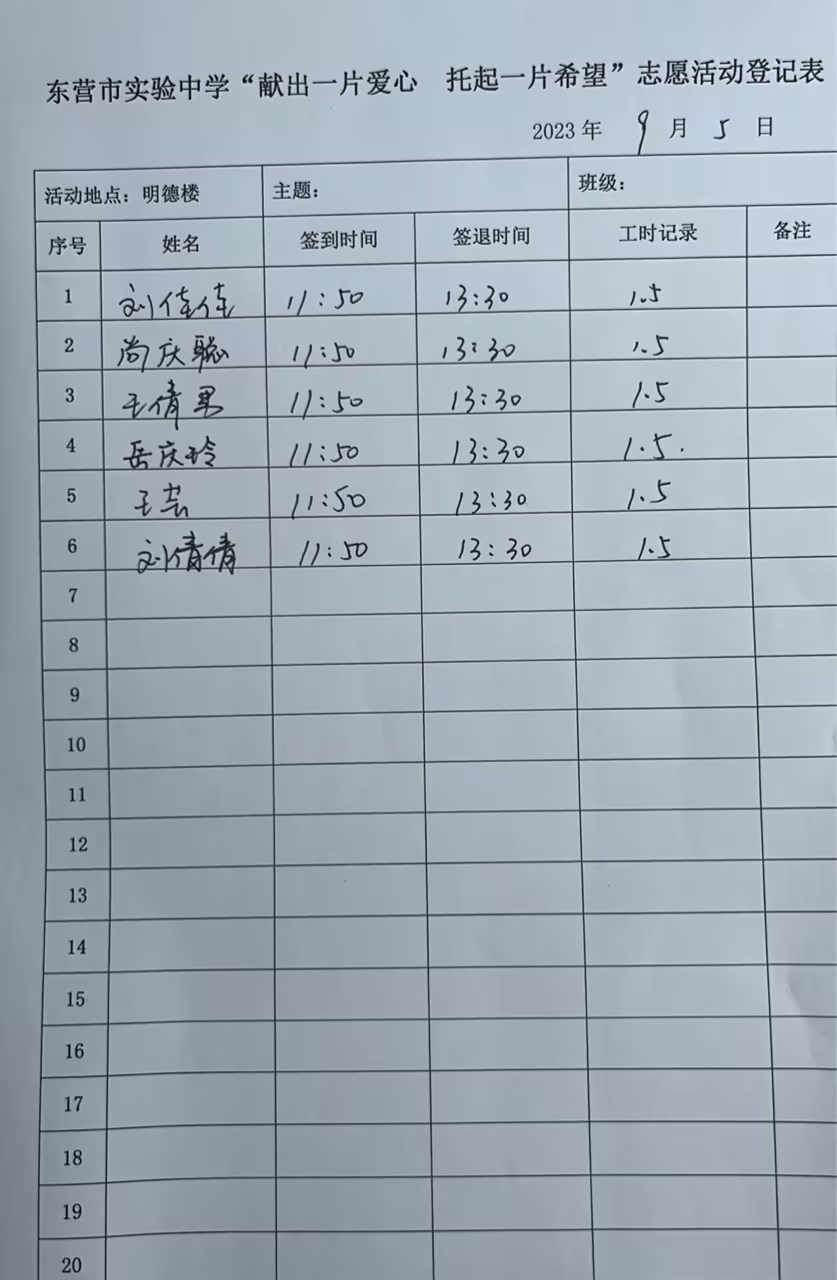 东营市实验中学“献出一片爱心 托起一片希望”志愿活动登记表
2023 年 9 月 5 日
活动地点：明德楼 主题： 班级：
序号 姓名 签到时间 签退时间 工时记录 备注
1 刘佳佳 11:50 13:30 1.5
2 尚庆聪 11:50 13:30 1.5
3 王倩男 11:50 13:30 1.5
4 岳庆玲 11:50 13:30 1.5.
5 王芸 11:50 13:30 1.5
6 刘倩倩 11:50 13:30 1.5
7
8
9
10
11
12
13
14
15
16
17
18
19
20